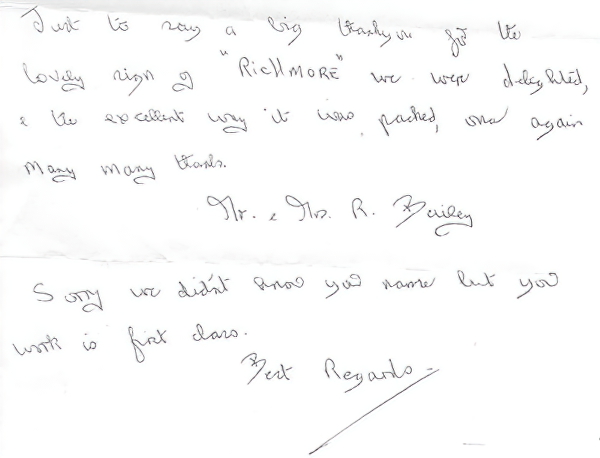 Just to say a big thankyou for the
lovely sign of "RICHMORE" we were delighted,
& the excellent way it was packed, once again
many many thanks.
Mr. & Mrs. R. Bailey
Sorry we didn't know your name but your
work is first class.
Best Regards